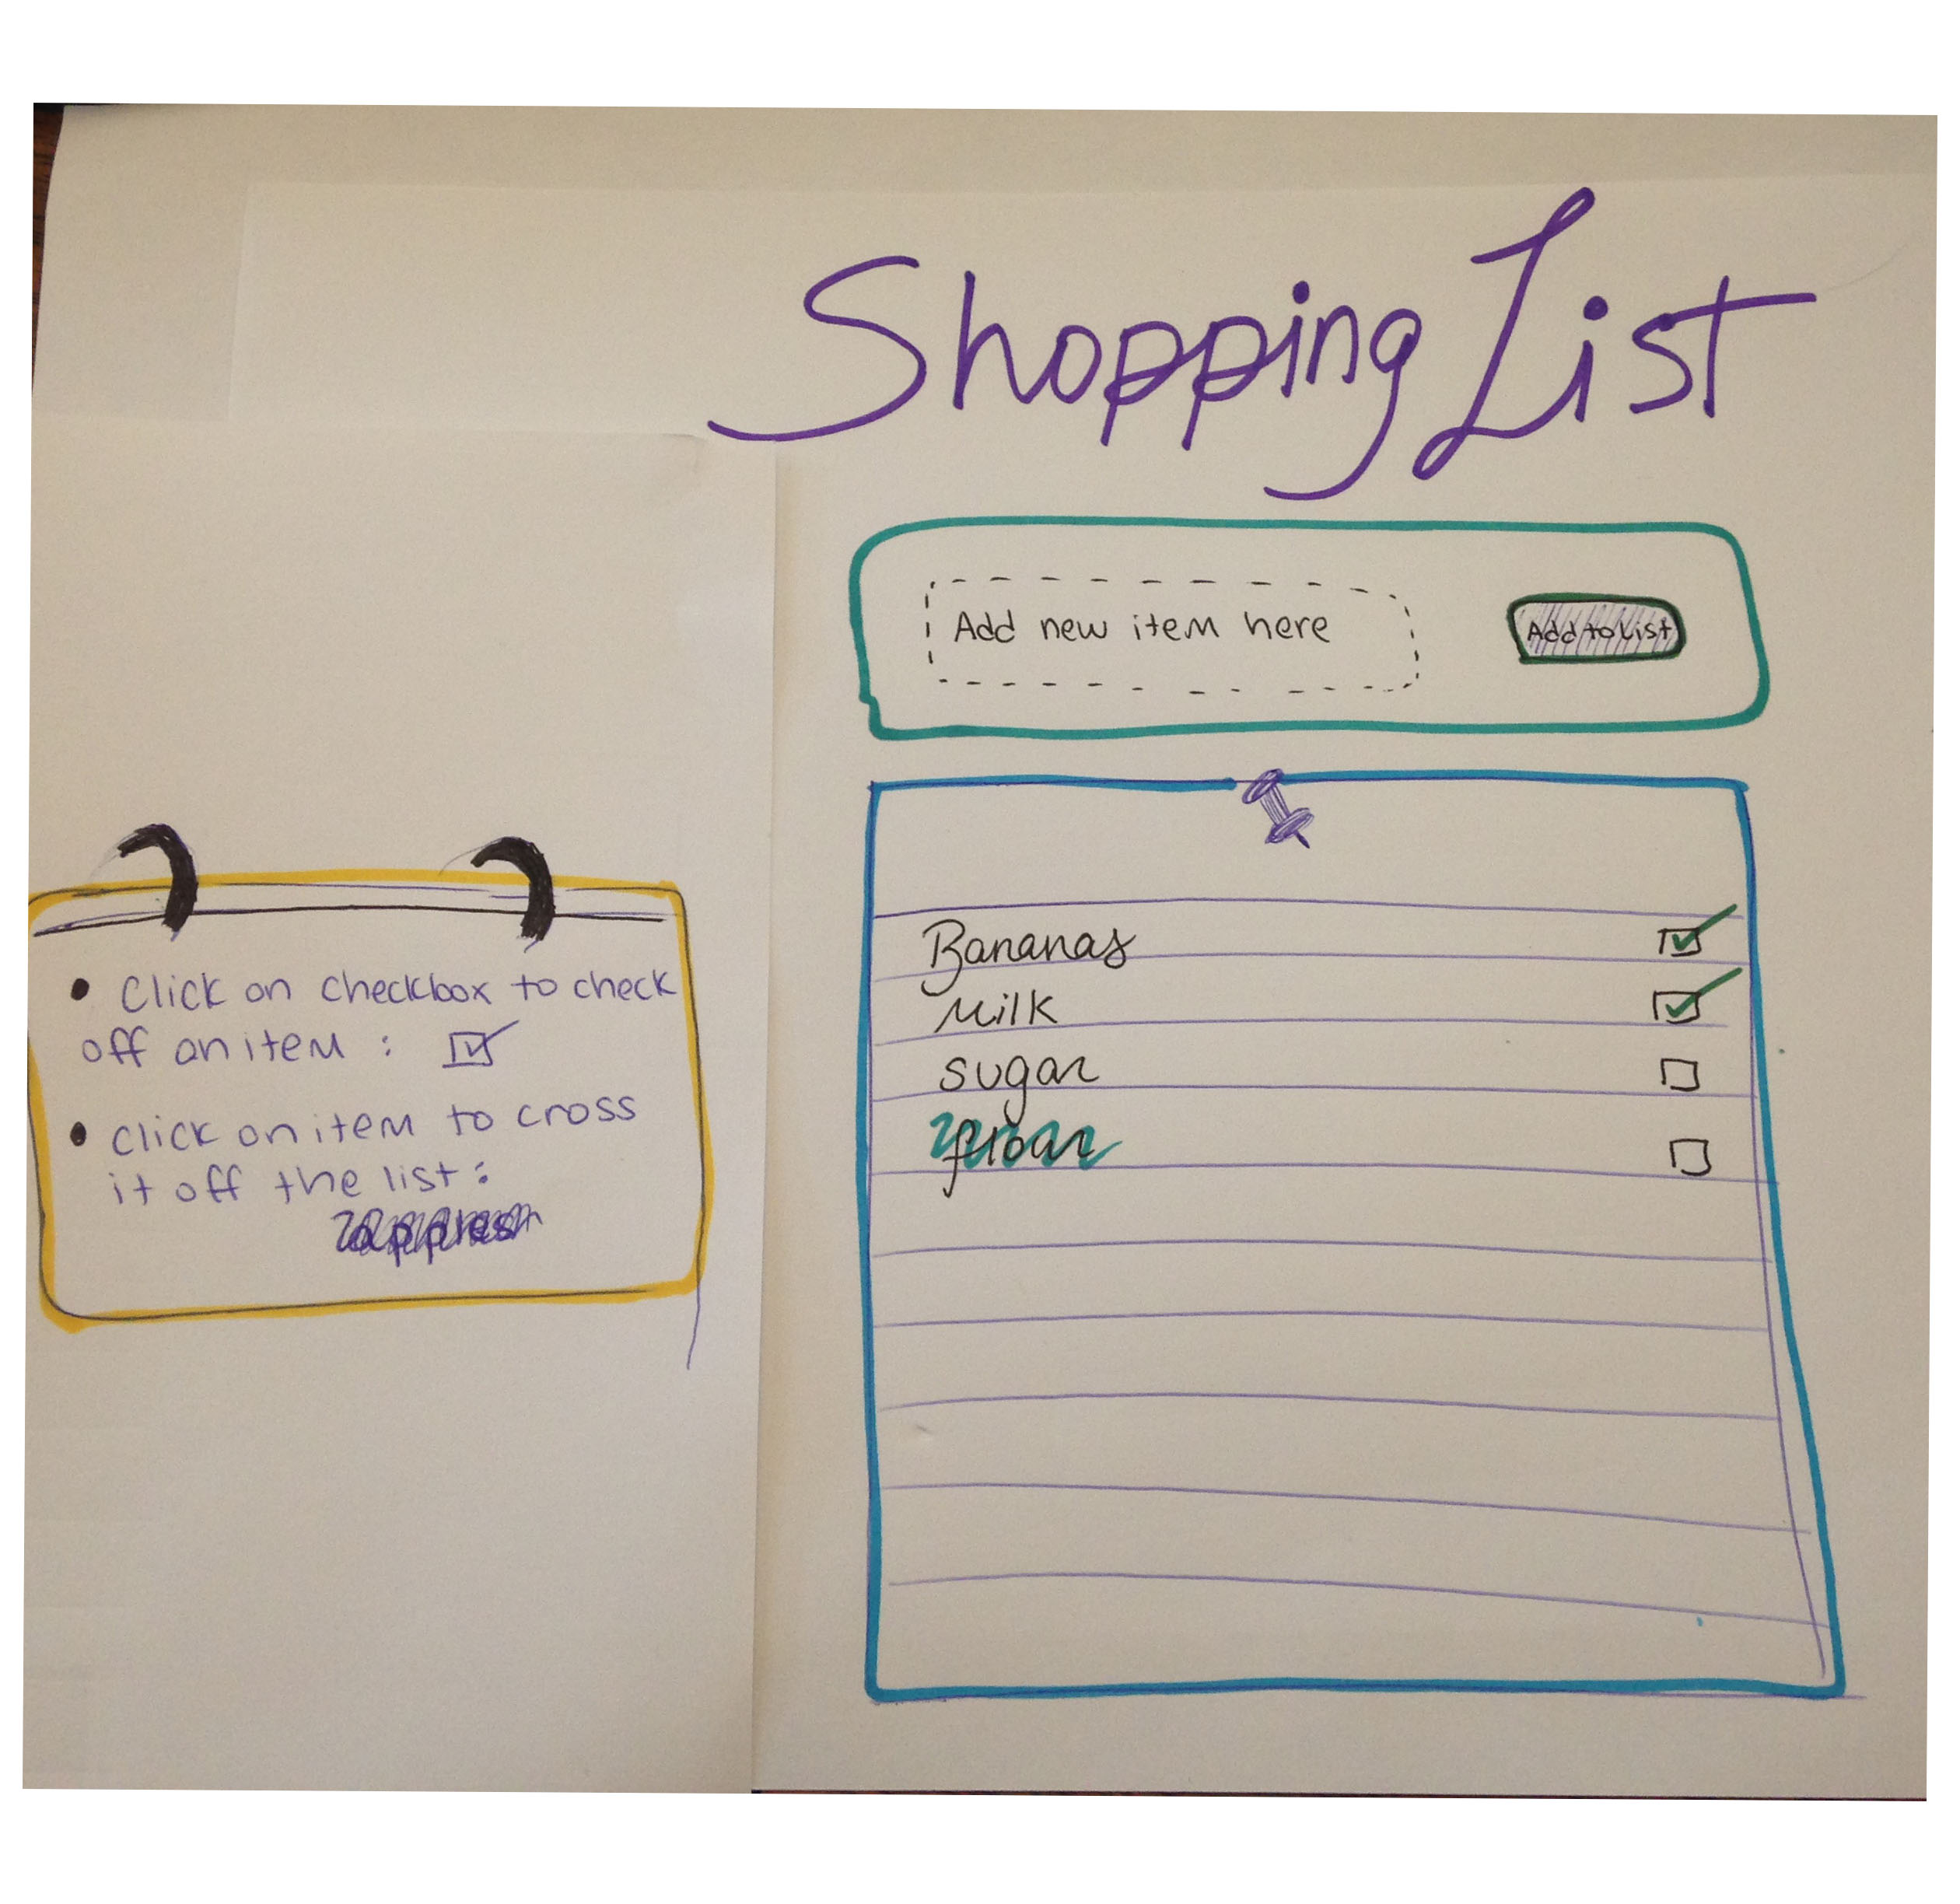 Shopping List
Add new item here
Add to List
Bananas
Milk
sugar
flour
• Click on checkbox to check
off an item :
• Click on item to cross
it off the list :
apples